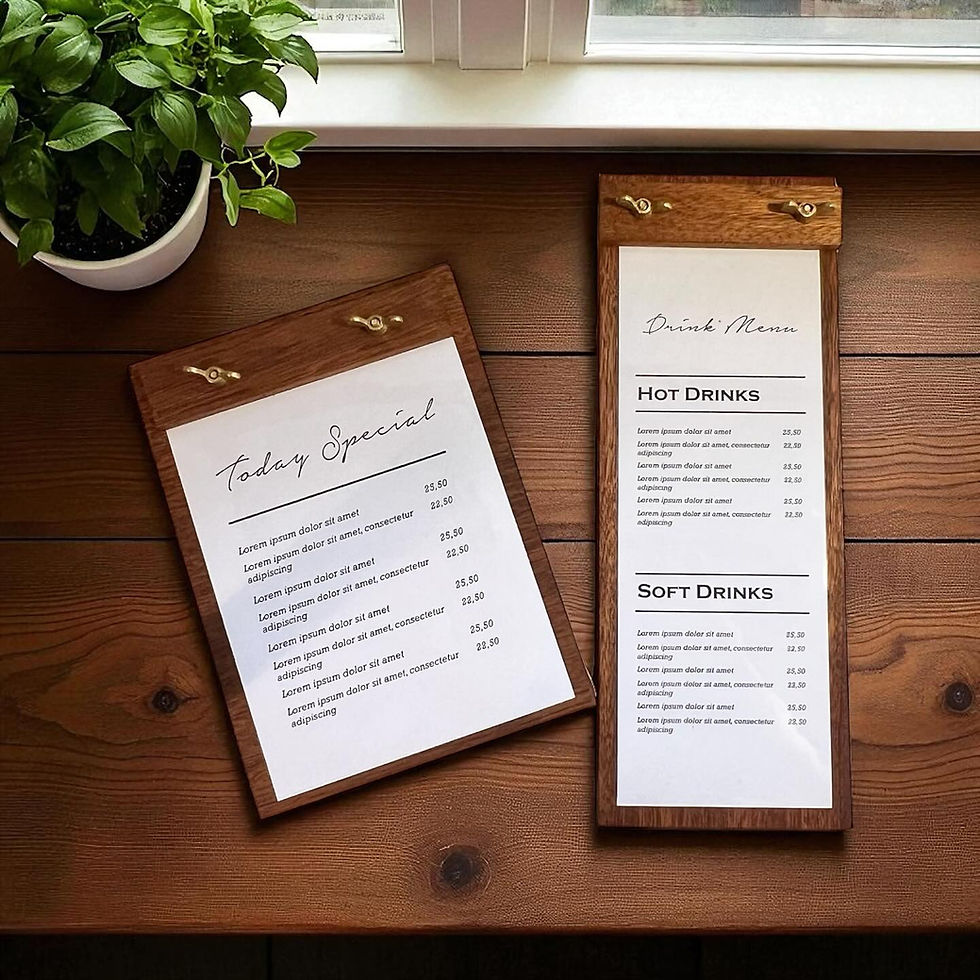 Today Special
Lorem ipsum dolor sit amet 25,50
Lorem ipsum dolor sit amet, consectetur 22,50
adipiscing
Lorem ipsum dolor sit amet 25,50
Lorem ipsum dolor sit amet, consectetur 22,50
adipiscing
Lorem ipsum dolor sit amet 25,50
Lorem ipsum dolor sit amet, consectetur 22,50
adipiscing
Lorem ipsum dolor sit amet 25,50
Lorem ipsum dolor sit amet, consectetur 22,50
adipiscing
Drink Menu
HOT DRINKS
Lorem ipsum dolor sit amet 25,50
Lorem ipsum dolor sit amet, consectetur 22,50
adipiscing
Lorem ipsum dolor sit amet 25,50
Lorem ipsum dolor sit amet, consectetur 22,50
adipiscing
Lorem ipsum dolor sit amet 25,50
Lorem ipsum dolor sit amet, consectetur 22,50
adipiscing
SOFT DRINKS
Lorem ipsum dolor sit amet 25,50
Lorem ipsum dolor sit amet, consectetur 22,50
adipiscing
Lorem ipsum dolor sit amet 25,50
Lorem ipsum dolor sit amet, consectetur 22,50
adipiscing
Lorem ipsum dolor sit amet 25,50
Lorem ipsum dolor sit amet, consectetur 22,50
adipiscing